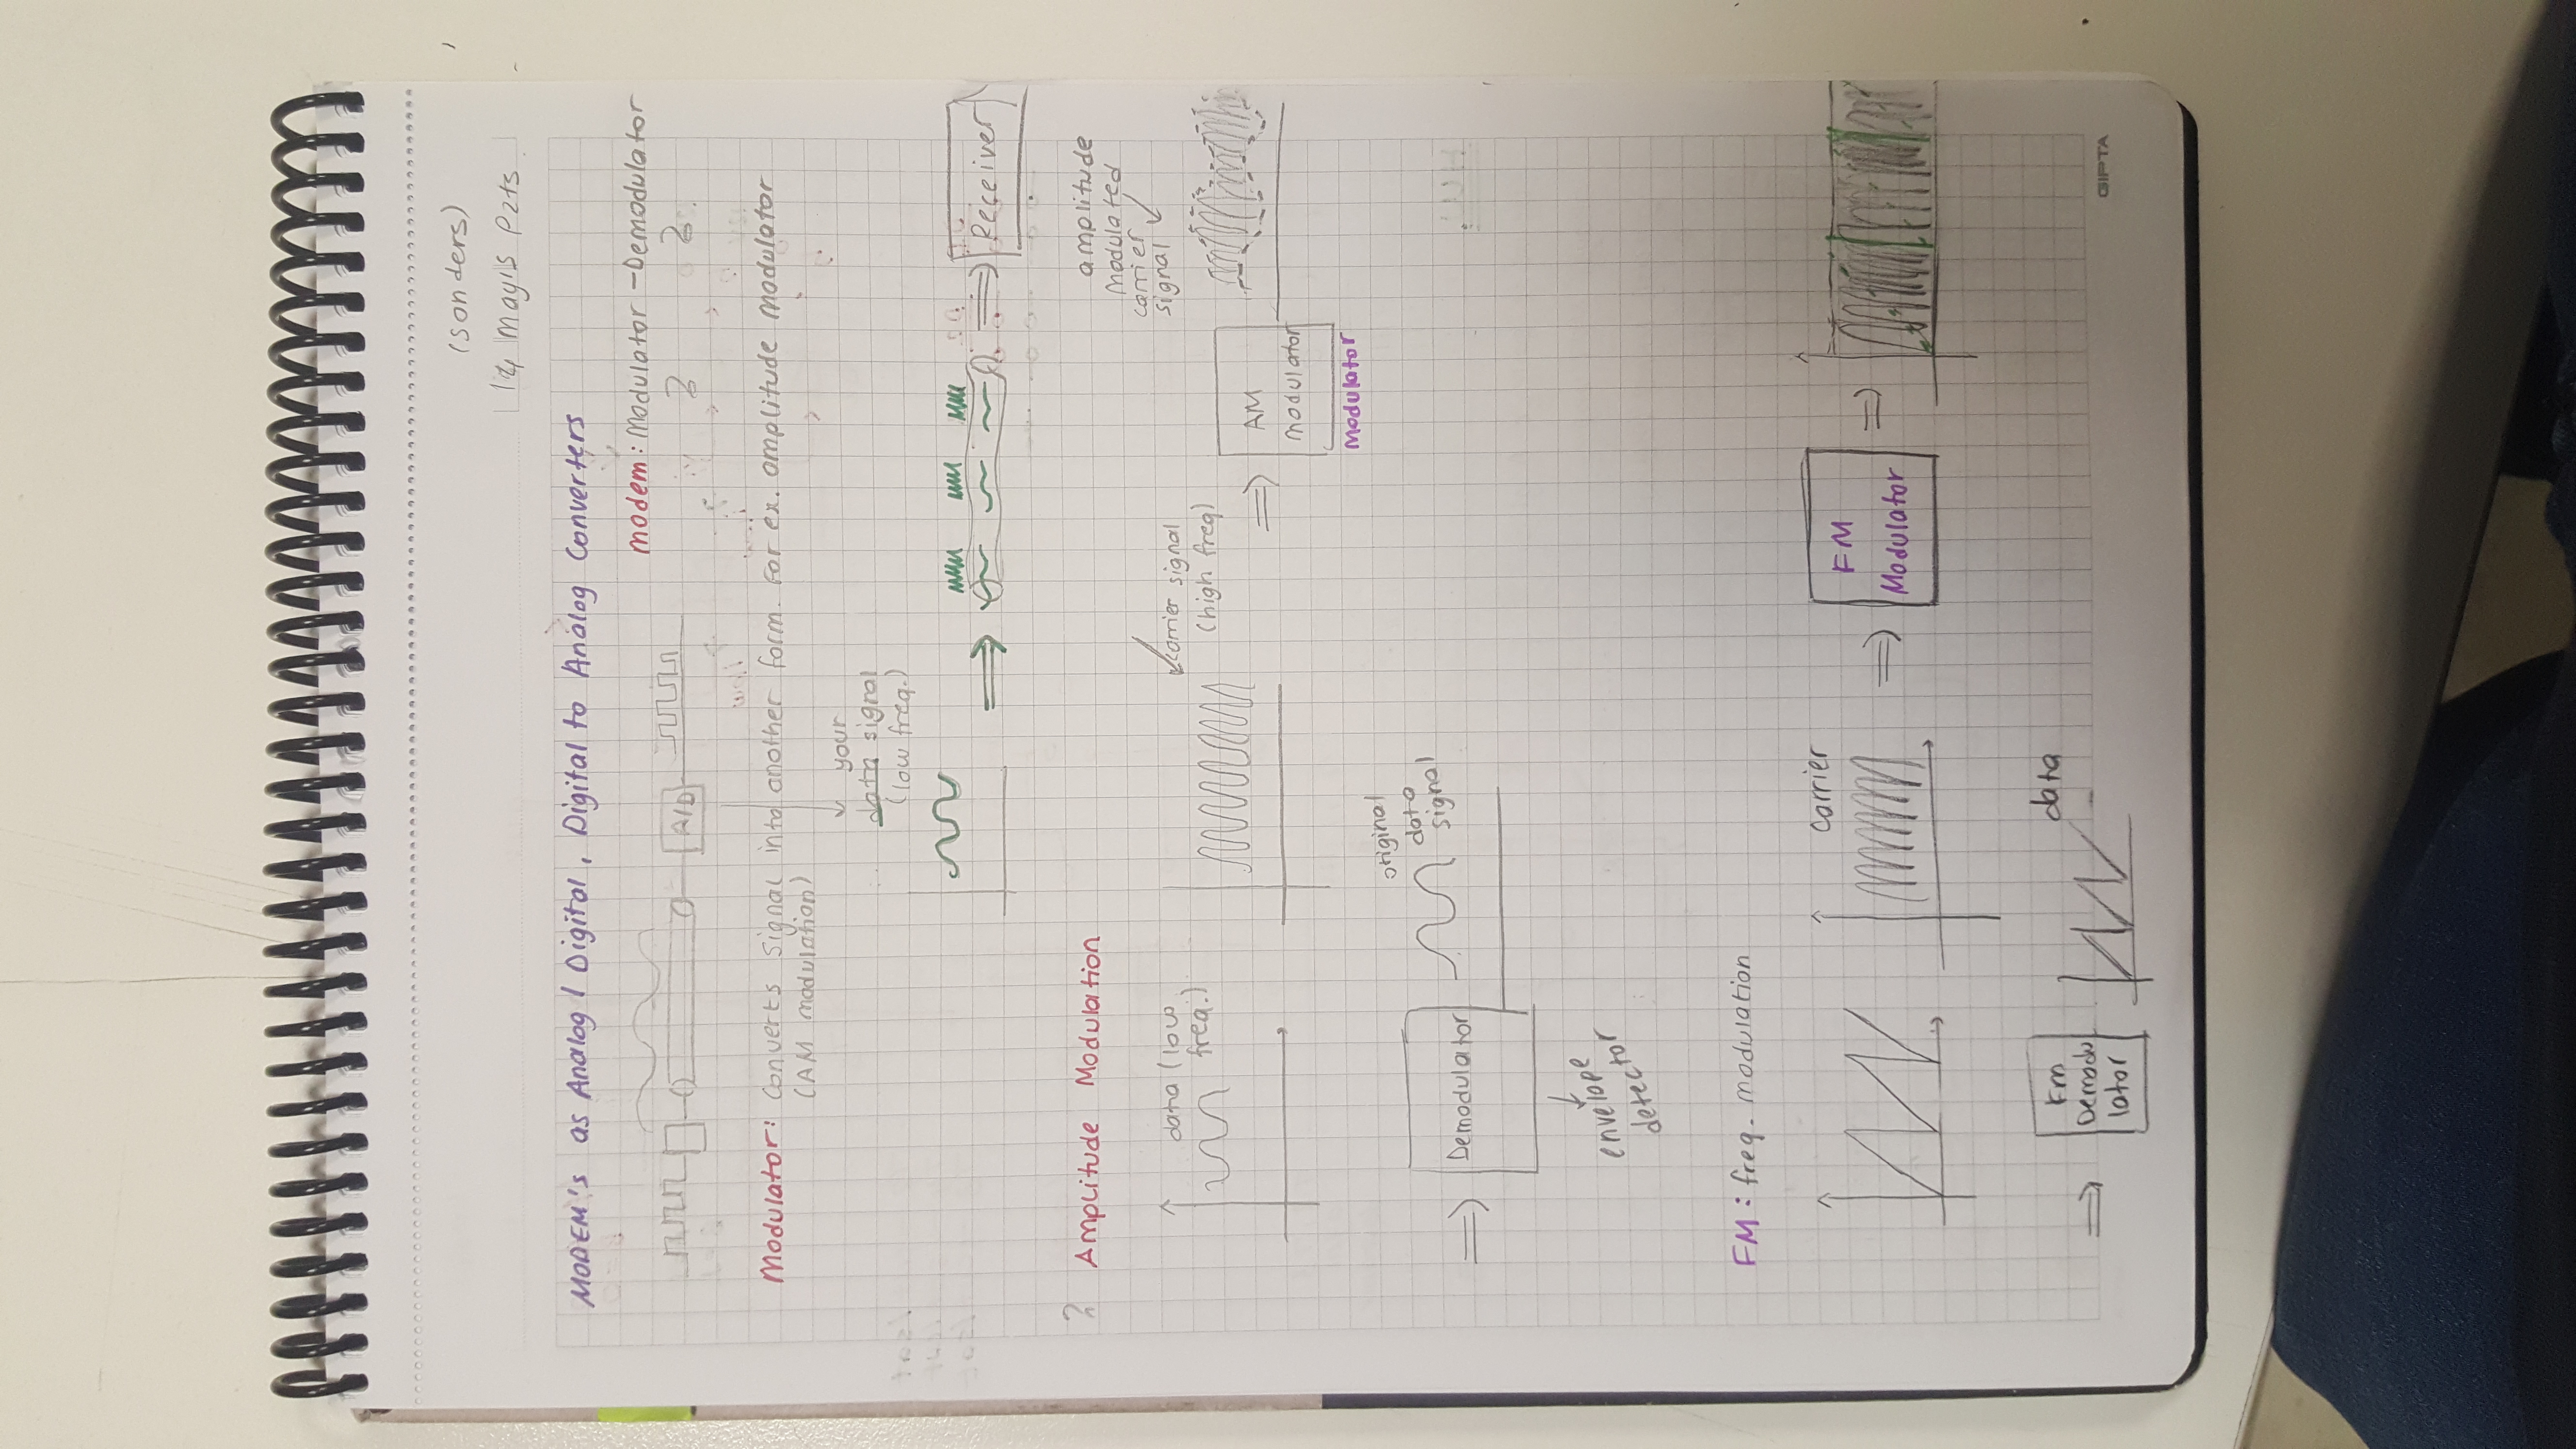 (son ders)
14 Mayıs Pzts
MODEM's as Analog / Digital, Digital to Analog Converters
modem: Modulator - Demodulator
? ?
A/D
Modulator: Converts signal into another form. For ex. amplitude modulator
(AM modulation)
your
data signal
(low freq.)
Receiver
? Amplitude Modulation
amplitude
modulated
carrier
signal
data (low
freq.)
carrier signal
(high freq)
AM
modulator
Modulator
original
data
signal
Demodulator
envelope
detector
FM: freq. modulation
carrier
FM
Modulator
data
Fm
Demodu
lator
GIPTA